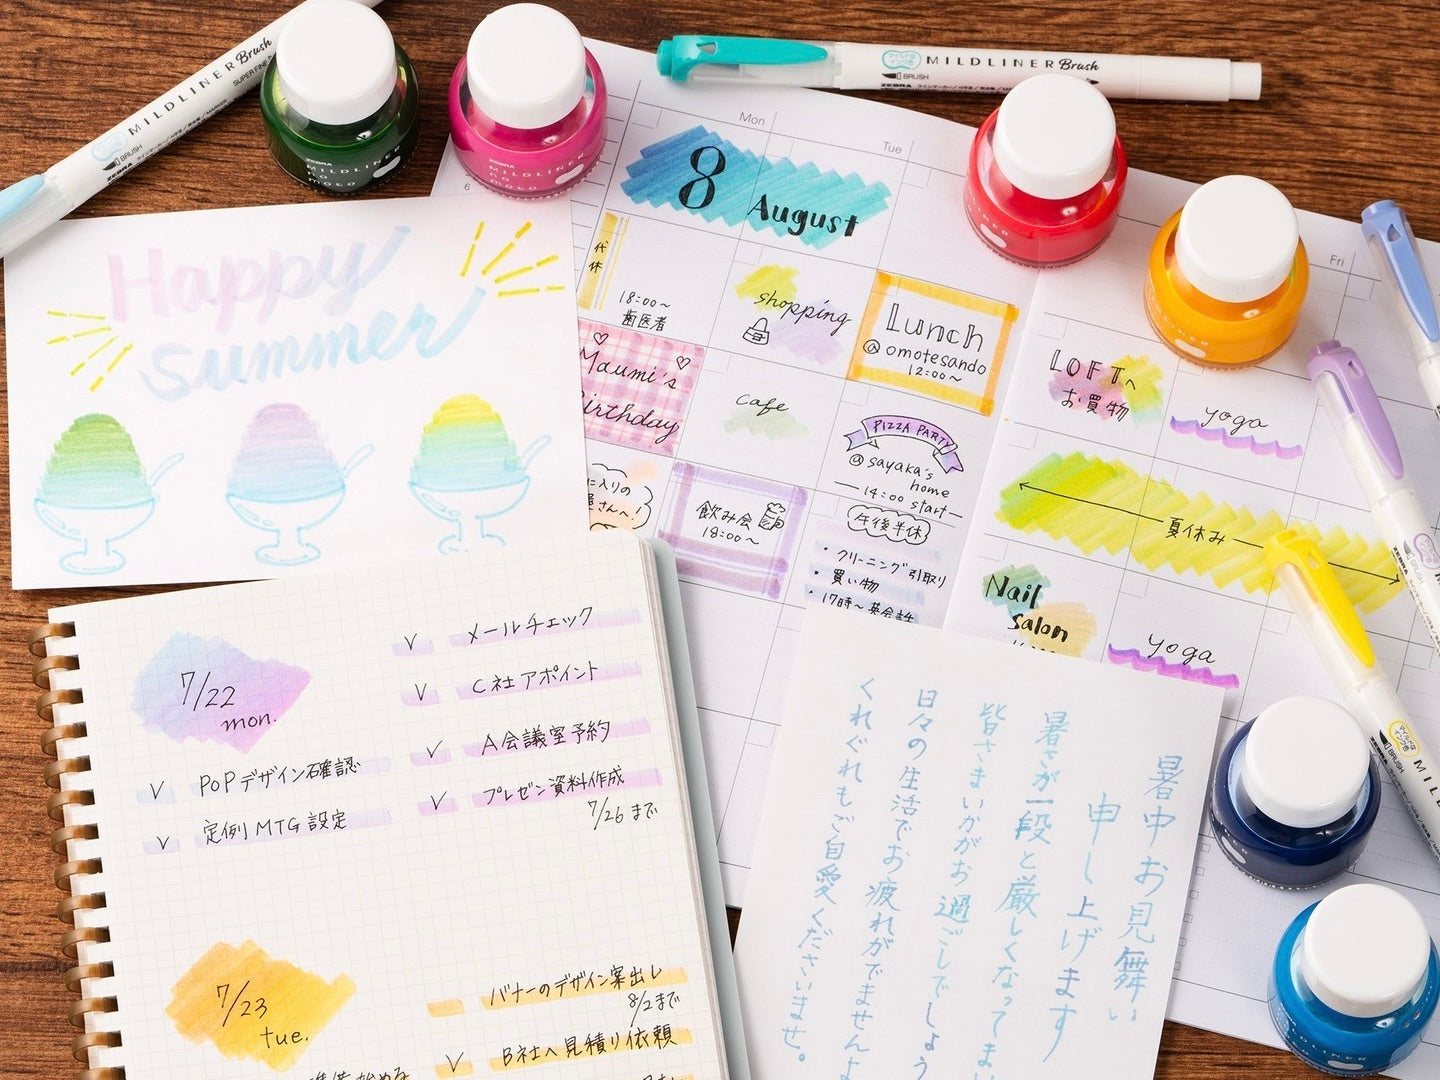 MILDLINER Brush
BRUSH
ZEBRA
MILDLINER Brush
SUPER FINE
BRUSH
ZEBRA
ZEBRA
MILDLINER
no
moto
ZEBRA
MILDLINER
no
moto
Happy
Summer
Mon
Tue
Fri
6
8 August
代休
18:00~
歯医者
shopping
Lunch
@omotesando
12:00~
Maumi's
Birthday
cafe
PIZZA PARTY
@sayaka's
home
14:00 start
に入りの
屋さんへ!
飲み会
18:00~
午後半休
・クリーニング引取り
・買い物
・17時~英会話
LOFTへ
お買物
yoga
夏休み
Nail
salon
yoga
7/22
mon.
✓ POPデザイン確認
✓ 定例MTG設定
✓ メールチェック
✓ C社アポイント
✓ A会議室予約
✓ プレゼン資料作成
7/26まで
7/23
tue.
バナーのデザイン案出し
8/2まで
✓ B社へ見積り依頼
準備始める
暑中お見舞い
申し上げます
暑さが一段と厳しくなってまい
皆さまいかがお過ごしでしょう
日々の生活でお疲れがでませんよ
くれぐれもご自愛くださいませ。